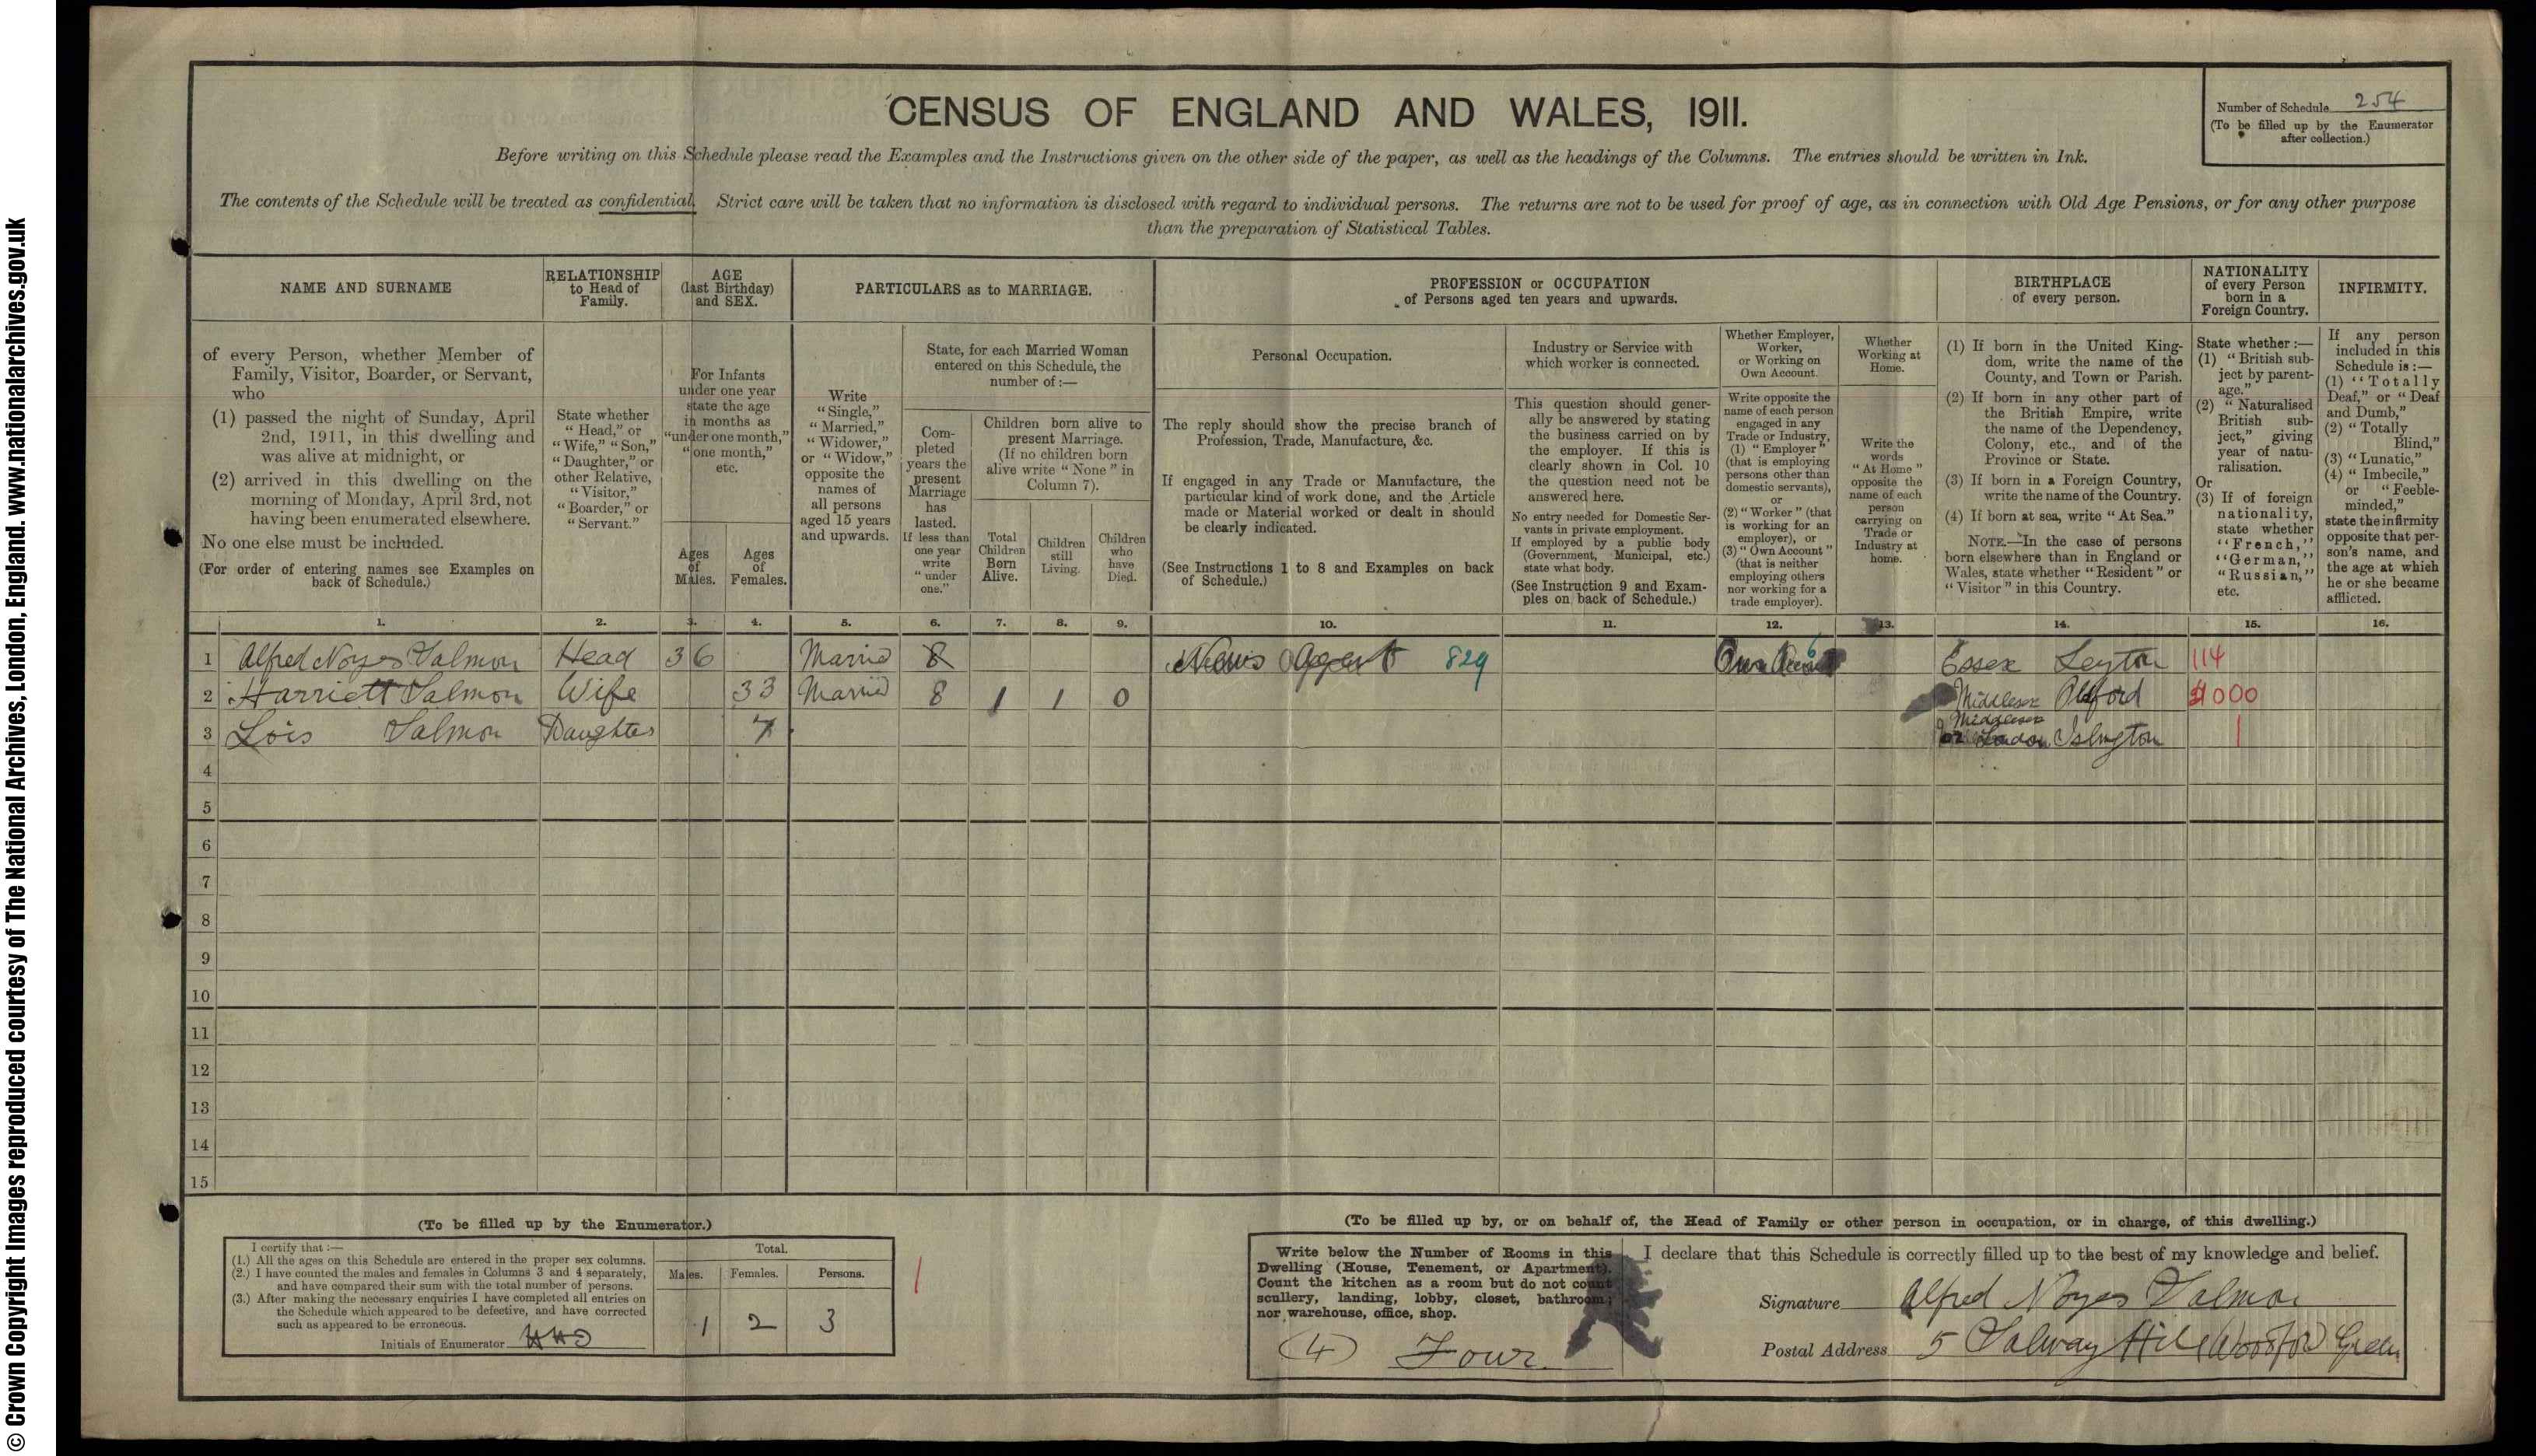 © Crown Copyright Images reproduced courtesy of The National Archives, London, England. www.nationalarchives.gov.uk
CENSUS OF ENGLAND AND WALES, 1911.
Number of Schedule 254
(To be filled up by the Enumerator
after collection.)
Before writing on this Schedule please read the Examples and the Instructions given on the other side of the paper, as well as the headings of the Columns. The entries should be written in Ink.
The contents of the Schedule will be treated as confidential. Strict care will be taken that no information is disclosed with regard to individual persons. The returns are not to be used for proof of age, as in connection with Old Age Pensions, or for any other purpose
than the preparation of Statistical Tables.
NAME AND SURNAME
of every Person, whether Member of
Family, Visitor, Boarder, or Servant,
who
(1) passed the night of Sunday, April
2nd, 1911, in this dwelling and
was alive at midnight, or
(2) arrived in this dwelling on the
morning of Monday, April 3rd, not
having been enumerated elsewhere.
No one else must be included.
(For order of entering names see Examples on
back of Schedule.)
RELATIONSHIP
to Head of
Family.
State whether
"Head," or
"Wife," "Son,"
"Daughter," or
other Relative,
"Visitor,"
"Boarder," or
"Servant."
AGE
(last Birthday)
and SEX.
For Infants
under one year
state the age
in months as
"under one month,"
"one month,"
etc.
Ages
of
Males.
Ages
of
Females.
PARTICULARS as to MARRIAGE.
Write
"Single,"
"Married,"
"Widower,"
or "Widow,"
opposite the
names of
all persons
aged 15 years
and upwards.
State, for each Married Woman
entered on this Schedule, the
number of:—
Com-
pleted
years the
present
Marriage
has
lasted.
If less than
one year
write
"under
one."
Children born alive to
present Marriage.
(If no children born
alive write "None" in
Column 7).
Total
Children
Born
Alive.
Children
still
Living.
Children
who
have
Died.
PROFESSION or OCCUPATION
of Persons aged ten years and upwards.
Personal Occupation.
The reply should show the precise branch of
Profession, Trade, Manufacture, &c.
If engaged in any Trade or Manufacture, the
particular kind of work done, and the Article
made or Material worked or dealt in should
be clearly indicated.
(See Instructions 1 to 8 and Examples on back
of Schedule.)
Industry or Service with
which worker is connected.
This question should gener-
ally be answered by stating
the business carried on by
the employer. If this is
clearly shown in Col. 10
the question need not be
answered here.
No entry needed for Domestic Ser-
vants in private employment.
If employed by a public body
(Government, Municipal, etc.)
state what body.
(See Instruction 9 and Exam-
ples on back of Schedule.)
Whether Employer,
Worker,
or Working on
Own Account.
Write opposite the
name of each person
engaged in any
Trade or Industry,
(1) "Employer"
(that is employing
persons other than
domestic servants),
or
(2) "Worker" (that
is working for an
employer), or
(3) "Own Account"
(that is neither
employing others
nor working for a
trade employer).
Whether
Working at
Home.
Write the
words
"At Home"
opposite the
name of each
person
carrying on
Trade or
Industry at
home.
BIRTHPLACE
of every person.
(1) If born in the United King-
dom, write the name of the
County, and Town or Parish.
(2) If born in any other part of
the British Empire, write
the name of the Dependency,
Colony, etc., and of the
Province or State.
(3) If born in a Foreign Country,
write the name of the Country.
(4) If born at sea, write "At Sea."
NOTE.—In the case of persons
born elsewhere than in England or
Wales, state whether "Resident" or
"Visitor" in this Country.
NATIONALITY
of every Person
born in a
Foreign Country.
State whether:—
(1) "British sub-
ject by parent-
age."
(2) "Naturalised
British sub-
ject," giving
year of natu-
ralisation.
Or
(3) If of foreign
nationality,
state whether
"French,"
"German,"
"Russian,"
etc.
INFIRMITY.
If any person
included in this
Schedule is:—
(1) "Totally
Deaf," or "Deaf
and Dumb,"
(2) "Totally
Blind,"
(3) "Lunatic,"
(4) "Imbecile,"
or "Feeble-
minded,"
state the infirmity
opposite that per-
son's name, and
the age at which
he or she became
afflicted.
1. 2. 3. 4. 5. 6. 7. 8. 9. 10. 11. 12. 13. 14. 15. 16.
1 Alfred Noyes Salmon Head 36 Married 8 News Agent 829 Own 6 Essex Leyton 114
2 Harriett Salmon Wife 33 Married 8 1 1 0 Middlesex Oldford 1000
3 Lois Salmon Daughter 7 Middlesex London Islington 1
4
5
6
7
8
9
10
11
12
13
14
15
(To be filled up by the Enumerator.)
I certify that:—
(1.) All the ages on this Schedule are entered in the proper sex columns.
(2.) I have counted the males and females in Columns 3 and 4 separately,
and have compared their sum with the total number of persons.
(3.) After making the necessary enquiries I have completed all entries on
the Schedule which appeared to be defective, and have corrected
such as appeared to be erroneous.
Initials of Enumerator
Total.
Males. Females. Persons.
1 2 3
(To be filled up by, or on behalf of, the Head of Family or other person in occupation, or in charge, of this dwelling.)
Write below the Number of Rooms in this
Dwelling (House, Tenement, or Apartment).
Count the kitchen as a room but do not count
scullery, landing, lobby, closet, bathroom;
nor warehouse, office, shop.
(4) Four
I declare that this Schedule is correctly filled up to the best of my knowledge and belief.
Signature Alfred Noyes Salmon
Postal Address 5 Salway Hill Woodford Green